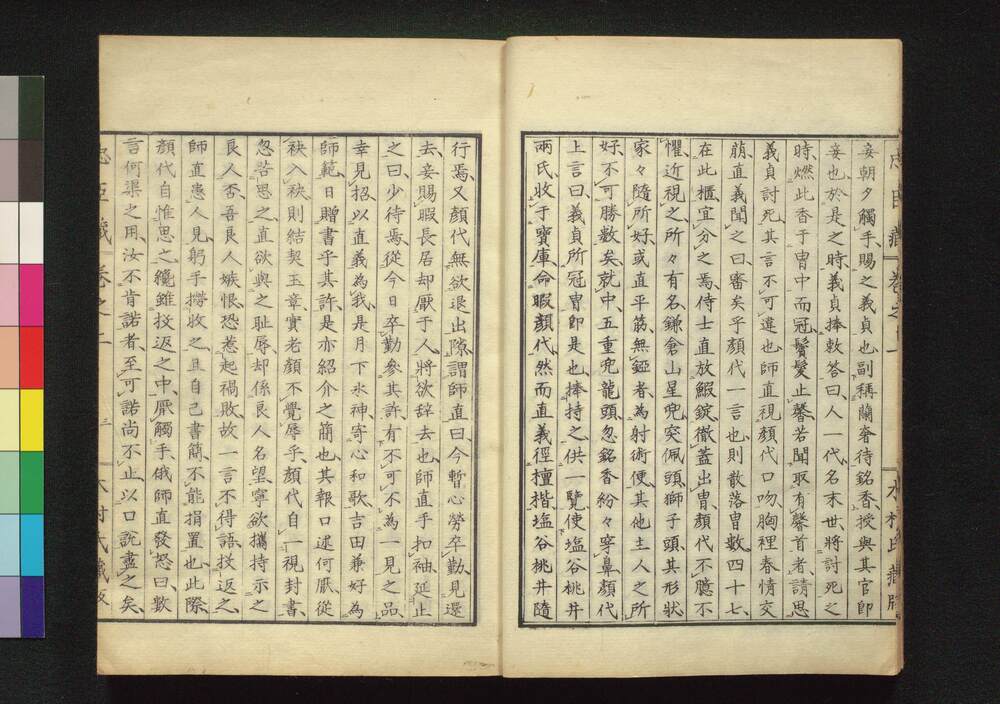 妾朝夕觸手賜之義貞也副稱蘭奢待銘香授與其官即
妾也於是之時義貞捧敕荅曰人一代名末世將討死之
時燃此香于冑中而冠鬢髮止馨若聞取有馨首者請思
義貞討死其言不可違也師直視顔代口吻胸裡春情交
萠直義聞之曰審矣乎顔代一言也則散落冑數四十七
在此櫃宜分之焉侍士直放鰕錠徹蓋出冑顔代不臆不
懼近視之所々有名鎌倉山星兜突佩頭獅子頭其形狀
家々隨所好或直平筋無錏者為射術便其他主人之所
好不可勝數矣就中五重兜龍頭忽銘香紛々穿鼻顔代
上言曰義貞所冠冑即是也捧持之供一覽使塩谷桃井
兩氏收于寶庫命暇顔代然而直義徑檀楷塩谷桃井隨
行焉又顔代無欲退出隙謂師直曰今暫心勞卒勤見還
去妾賜暇長居却厭于人將欲辞去也師直手扣袖延止
之曰少待焉從今日卒勤參其許有不可不為一見之品
幸見招以直義為我是月下氷神寄心和歌吉田兼好為
師範日贈書乎其許是亦紹介之簡也其報口述何厭從
袂入袂則結契玉章實老顔不覺辱乎顔代自一視封書
忽咨思之直欲與之耻辱却係良人名望寧欲攜持示之
良人否吾良人嫉恨恐惹起禍敗故一言不得語投返之
師直患人見躬手撈收之且自己書簡不能捐置也此際
顔代自惟思之纔雖投返之中厭觸手俄師直發怒曰數
言何渠之用汝不肯諾者至可諾尚不止以口説盡之矣